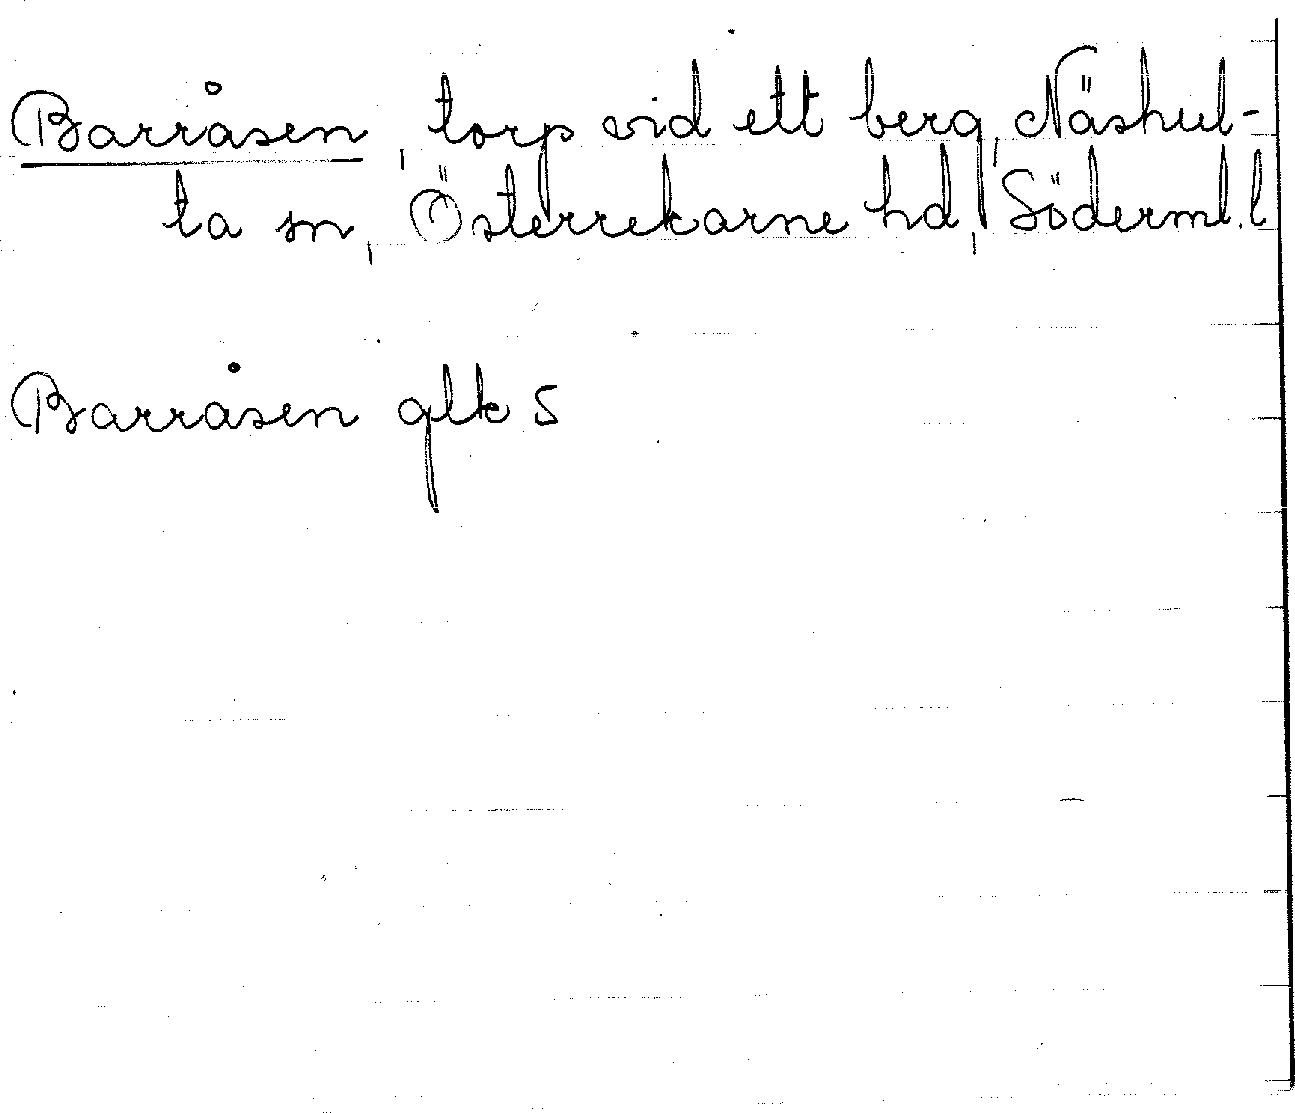 Barråsen, torp vid ett berg, Näshul-
ta sn, Österrekarne hd, Söderml. l
Barråsen glk S